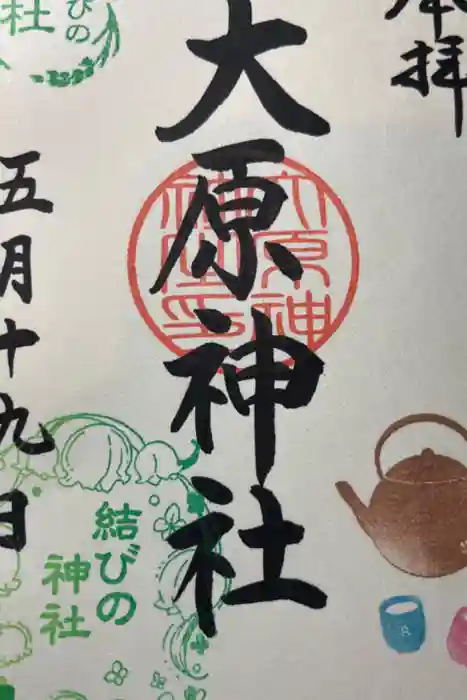 奉拝
大原神社
大原神社之印
五月十九日
結びの
神社
びの
社